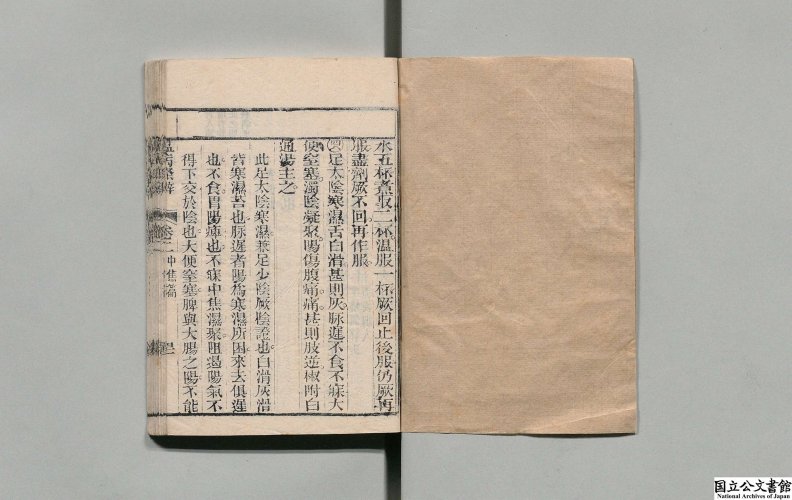 水五杯煑取二杯温服一杯厥回止後服仍厥再
服盡劑厥不回再作服
㊃足太陰寒濕舌白滑甚則灰脉遲不食不寐大
便窒塞濁陰凝聚陽傷腹痛痛甚則肢逆椒附白
通湯主之
此足太陰寒濕兼足少陰厥陰證也白滑灰滑
皆寒濕苔也脉遲者陽爲寒濕所困來去俱遲
也不食胃陽痺也不寐中焦濕聚阻遏陽氣不
得下交於陰也大便窒塞脾與大腸之陽不能
溫病條辨 卷二 中焦篇
国立公文書館
National Archives of Japan